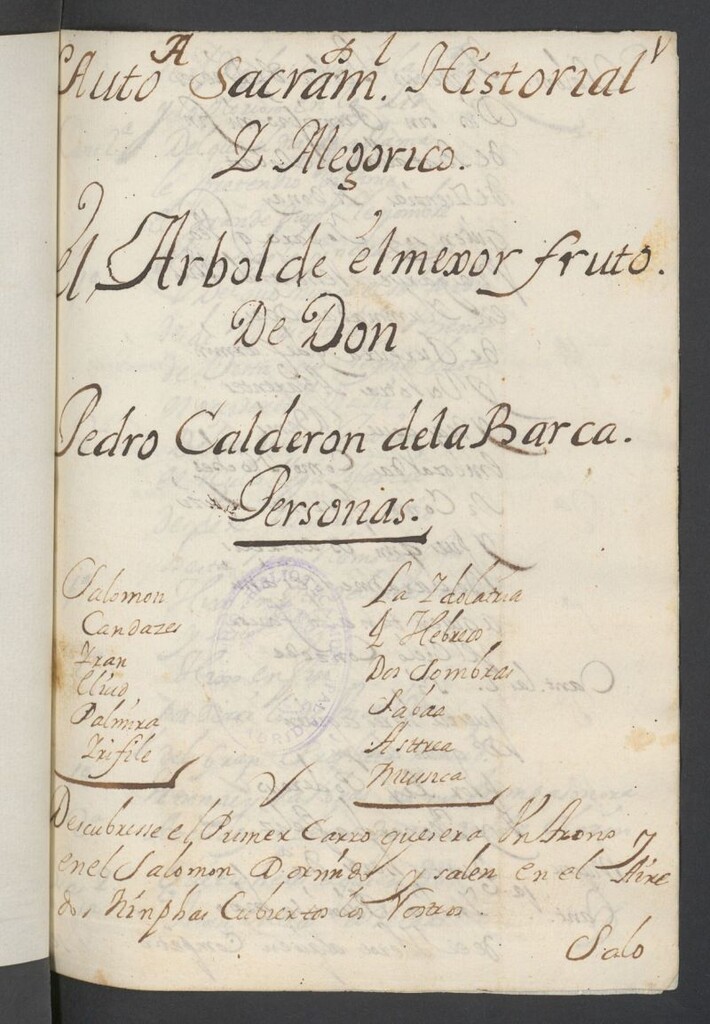 Auto Sacram.l Historial
Y Alegorico.
el Arbol de el mexor fruto.
De Don
Pedro Calderon dela Barca.
Personas.
Salomon
Candazes
Yran
Eliud
Palmira
Yrifile
La Ydolatria
Y Hebreo
Dos Sombras
Sabaa
Asttrea
Musica
Descubresse el Primer Carro que sera Vn trono y
en el Salomon Dormido y salen en el Aire
dos Ninphas Cubiertos los Rostros.
Salo